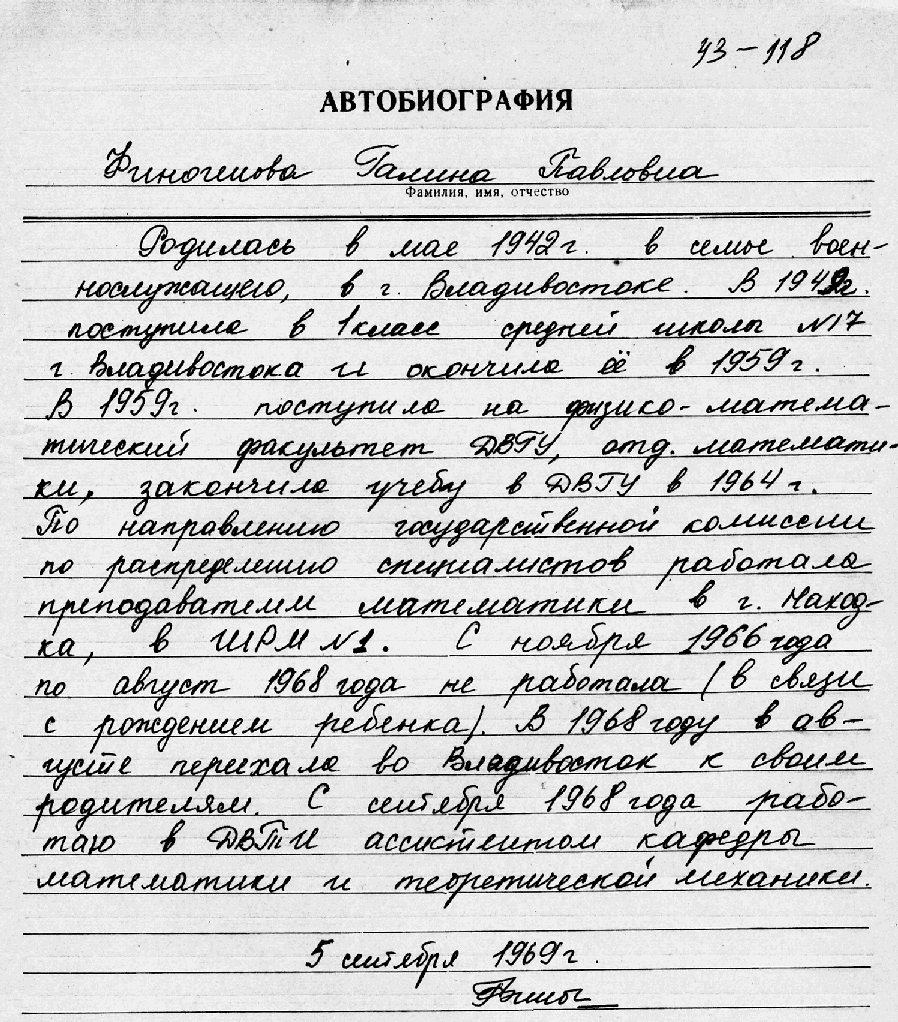 43-118
АВТОБИОГРАФИЯ
Финогенова Галина Павловна
Фамилия, имя, отчество
Родилась в мае 1942г. в семье воен-
нослужащего, в г. Владивостоке. В 1949г.
поступила в 1 класс средней школы N17
г Владивостока и окончила её в 1959г.
В 1959г. поступила на физико-матема-
тический факультет ДВГУ, отд. математи-
ки, закончила учебу в ДВГУ в 1964г.
По направлению государственной комиссии
по распределению специалистов работала
преподавателем математики в г. Наход-
ка, в ШРМ N1. С ноября 1966 года
по август 1968 года не работала (в связи
с рождением ребенка). В 1968 году в ав-
густе переехала во Владивосток к своим
родителям. С сентября 1968 года рабо-
таю в ДВТИ ассистентом кафедры
математики и теоретической механики.
5 сентября 1969г.